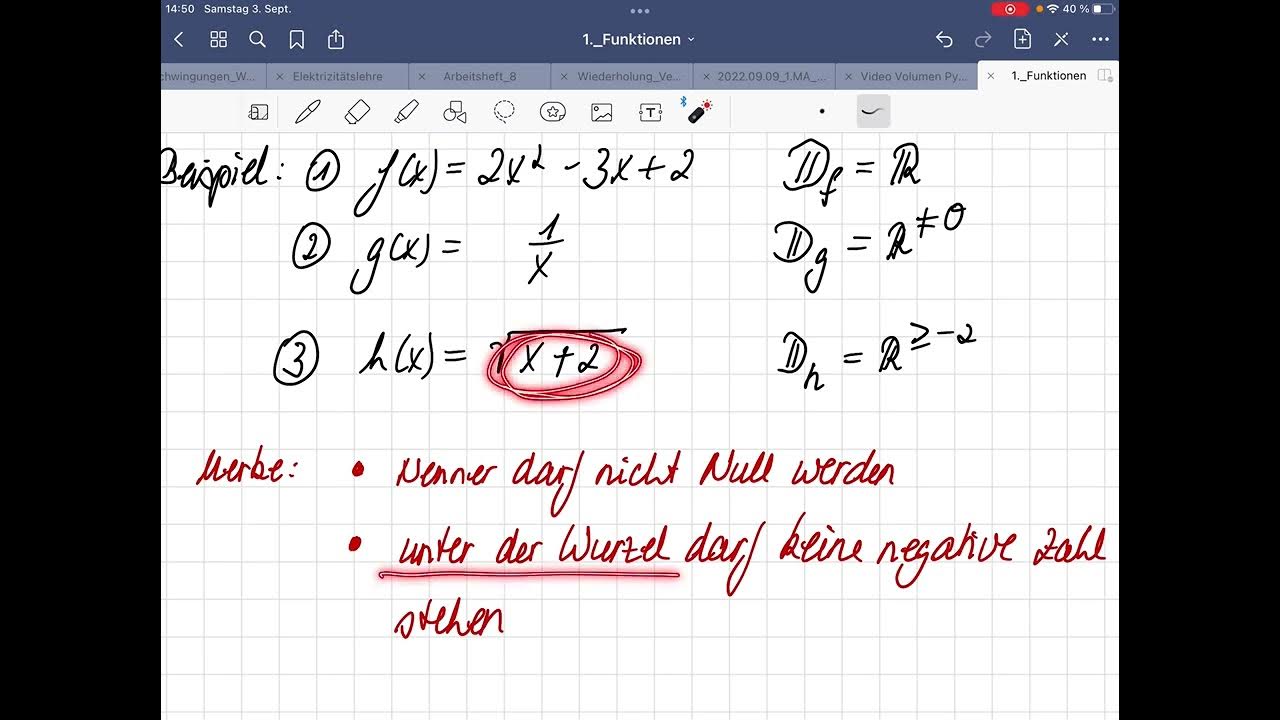 14:50 Samstag 3. Sept. 40 %
1._Funktionen
chwingungen_W... Elektrizitätslehre Arbeitsheft_8 Wiederholung_Ve... 2022.09.09_1.MA_... Video Volumen Py... 1._Funktionen
Beispiel: ① f(x) = 2x² - 3x + 2 𝔻f = ℝ
② g(x) = 1/x 𝔻g = ℝ^≠0
③ h(x) = √(x + 2) 𝔻h = ℝ^≥-2
Merke: • Nenner darf nicht Null werden
• unter der Wurzel darf keine negative Zahl
stehen